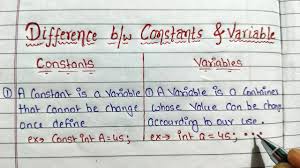 Difference b/w Constants & Variable
Constants
Variables
① A Constant is a Variable
that Cannot be change
once define
ex→ Const int A=45;
① A Variable is a Container
whose Value can be change
according to our use.
ex→ int a=45;